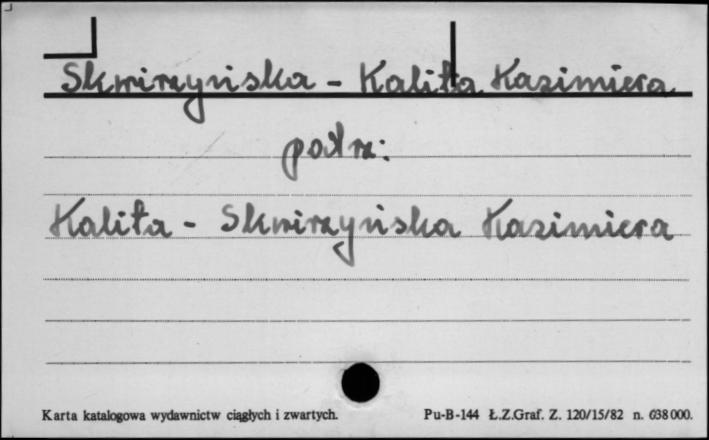 Skwirzyńska - Kalita Kazimiera
patrz:
Kalita - Skwirzyńska Kazimiera
Karta katalogowa wydawnictw ciągłych i zwartych. Pu-B-144 Ł.Z.Graf. Z. 120/15/82 n. 638000.